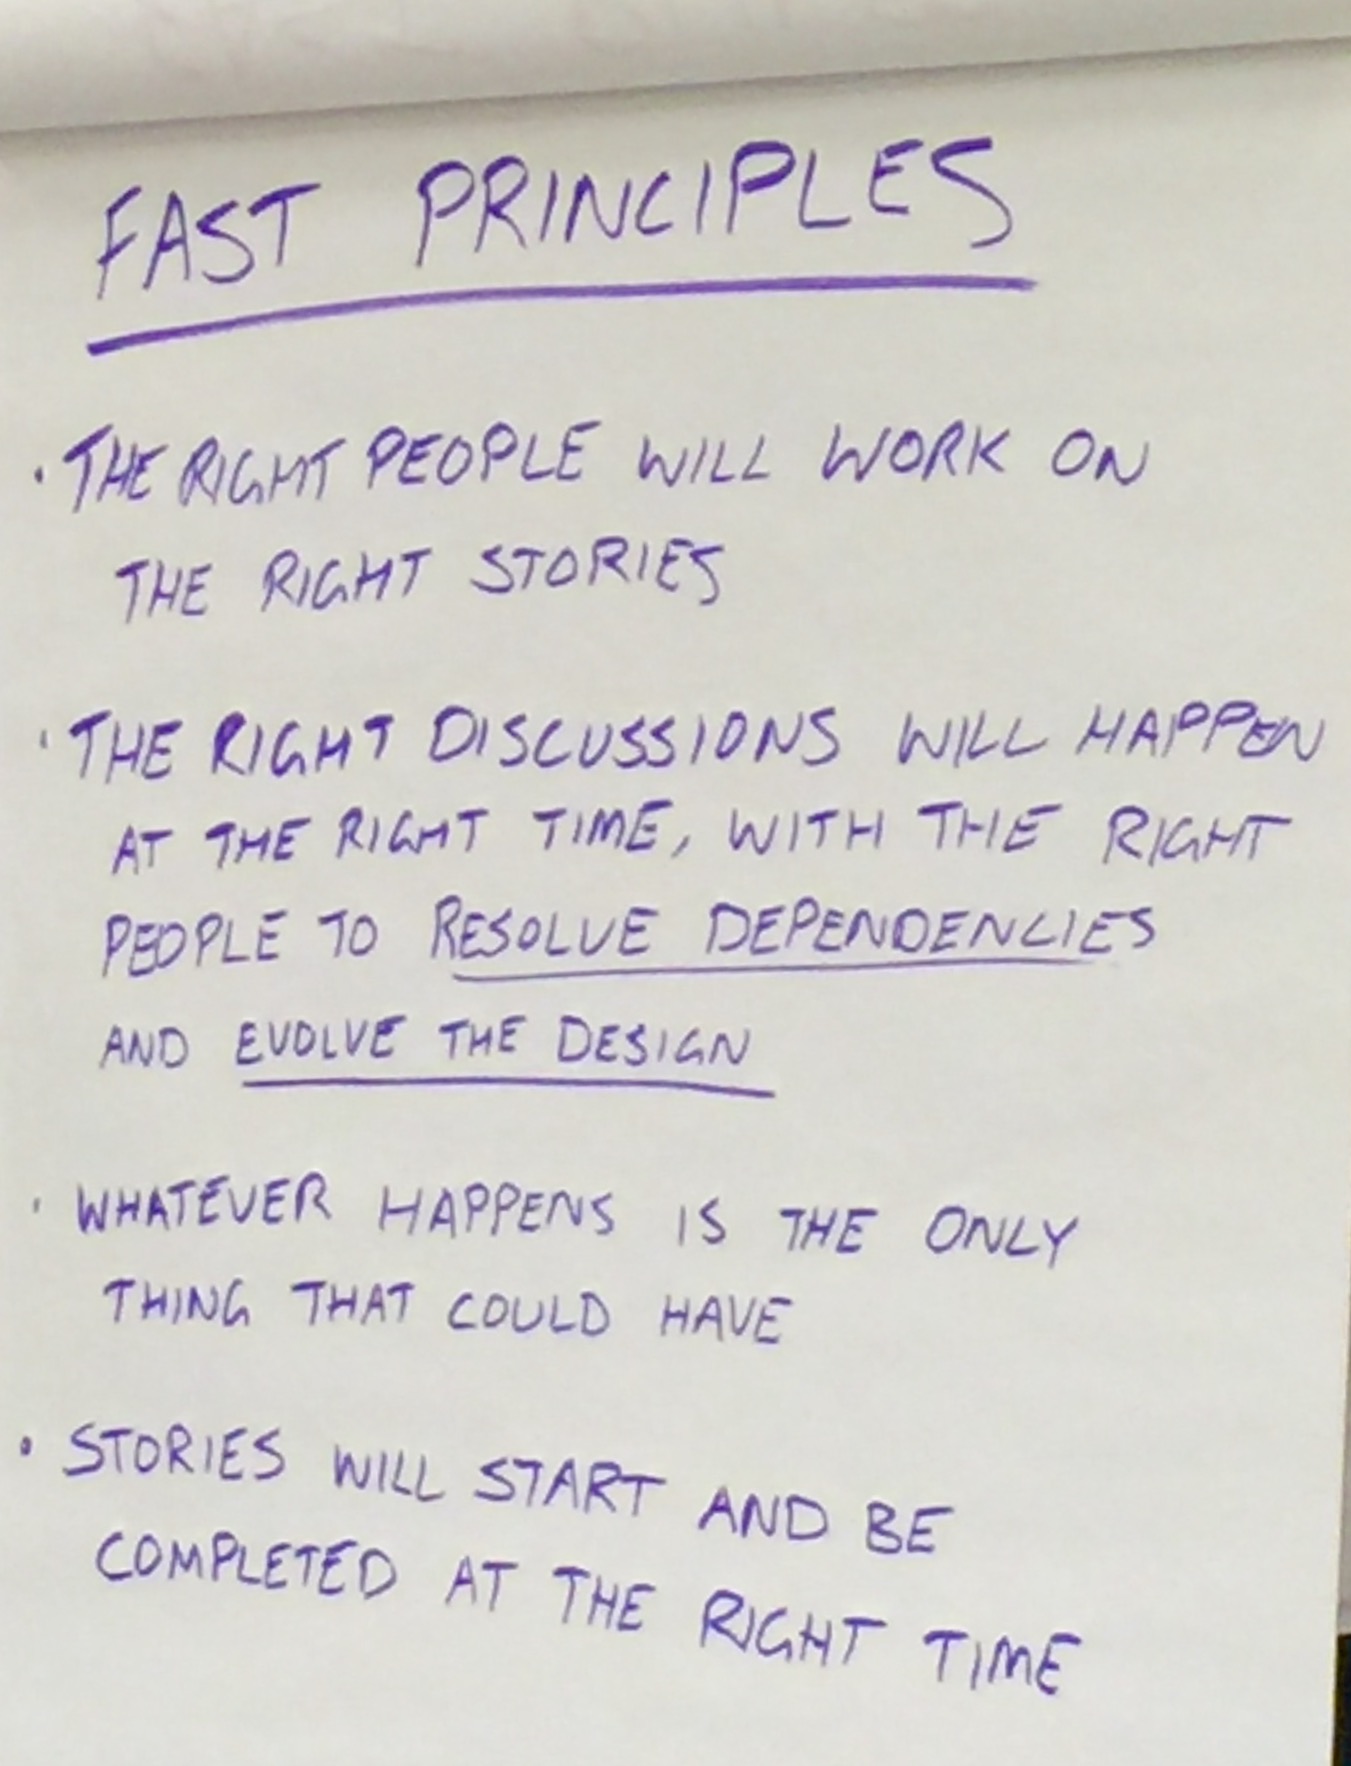 FAST PRINCIPLES
· THE RIGHT PEOPLE WILL WORK ON
THE RIGHT STORIES
· THE RIGHT DISCUSSIONS WILL HAPPEN
AT THE RIGHT TIME, WITH THE RIGHT
PEOPLE TO RESOLVE DEPENDENCIES
AND EVOLVE THE DESIGN
· WHATEVER HAPPENS IS THE ONLY
THING THAT COULD HAVE
· STORIES WILL START AND BE
COMPLETED AT THE RIGHT TIME